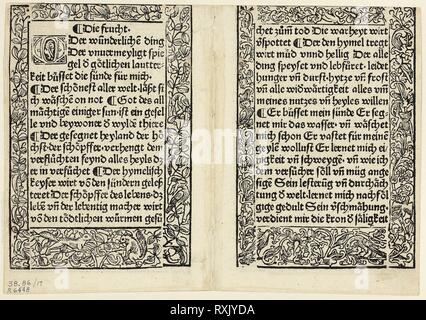 ¶Die frucht·
Der wūnderlichē ding
Der vnuermeyligt spie
gel ð götlichen lautter-
keit büsset die sünde für mich·
¶Der schönest aller welt·laßt si
ch wäschē on not ¶Got des all
mächtige einiger sun·ist ein gesel
le vnd beywoner ð wylde thiere
¶Der gesegnet heyland der hö
chst·der schöpffer·verhengt den
verflůchten feynd alles heyls dz
er in versůche ¶Der hymelisch
keyser wirt võ den sündern geles
tert Der schöpffer des lebens·dz
lebē vñ der lebentig macher wirt
võ den tödtlichen würmen gefü
chet zům tod Die warheyt wirt
v̄spottet ¶Der den hymel tregt
wirt müd vnnd hellig Der alle
ding speyset vnd lebfüret·leidet
hunger vñ durst·hytze vñ frost
vñ alle widwärtigkeit alles vm̄
meines nutzes vñ heyles willen
¶Er büsset mein sünde Er seg
net mir das wasser· vñ wäschet
mich schon Er vastet für meinē
geylē wollust Er lernet mich ei
nigkeit vñ schweygē· vñ wie ich
dem versůcher söll vñ müg ange
sigē Sein lesterūg vñ durchäch
tung ð welt·lernet mich nachfol
gige gedult Sein v̄schmähung·
verdient mir die kron ð säligkeit
38.86/17
R6448
RXJYDA